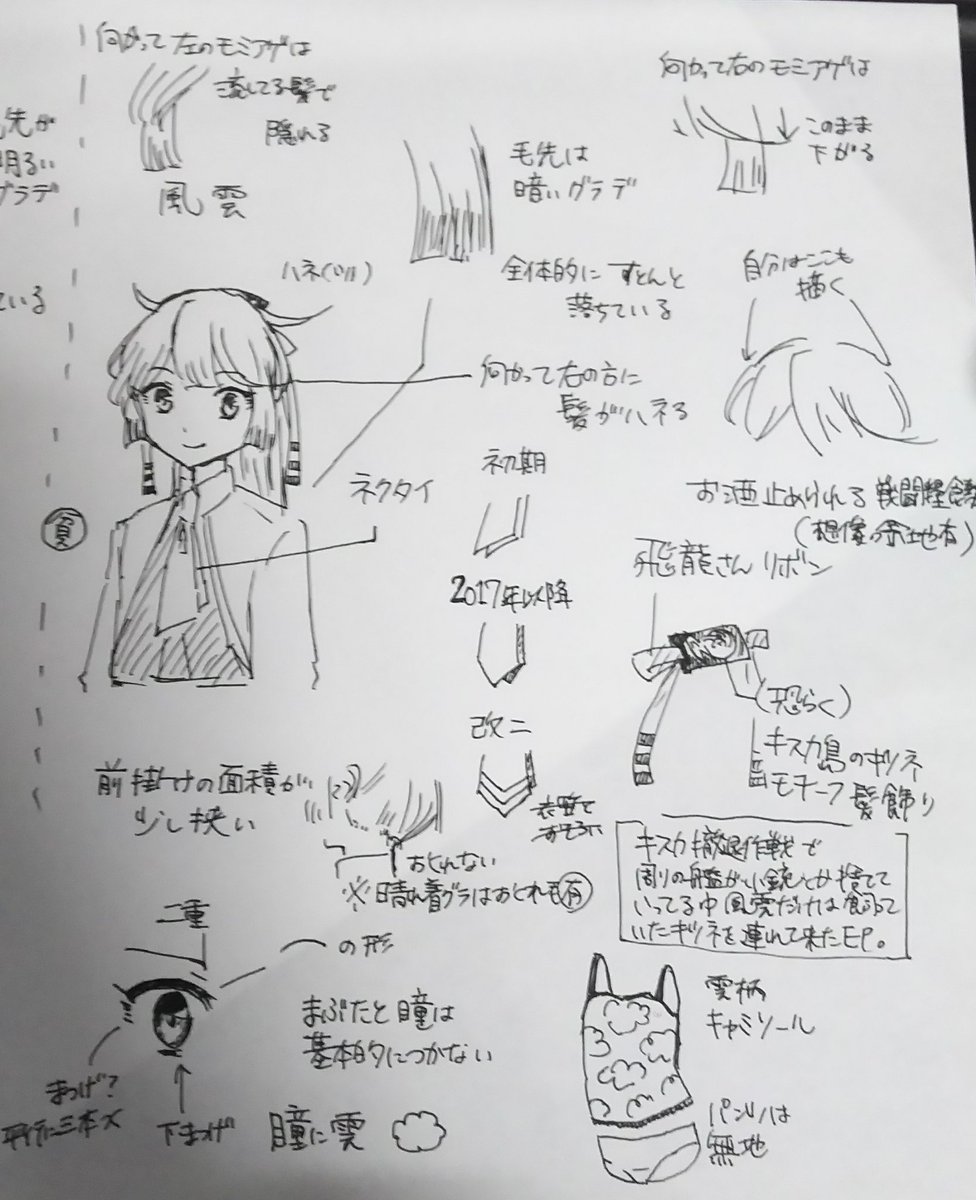 先が
明るい
グラデ
ている
向かって左のモミアゲは
流してる髪で
隠れる
風雲
毛先は
暗いグラデ
向かって右のモミアゲは
このまま
下がる
ハネ(ツル)
全体的にすとんと
落ちている
自分はここも
描く
向かって右の方に
髪がハネる
ネクタイ
初期
2017年以降
改二
お酒止められる
(想像の余地有)
飛龍さんリボン
(恐らく)
キスカ島のキツネ
モチーフ髪飾り
前掛けの面積が
少し狭い
おくれない
※晴れ着グラはおくれ毛有
キスカ撤退作戦で
周りの艦が小銃とか捨てて
いってる中風雲だけは飼って
いたキツネを連れて来たEP。
二重
の形
まぶたと瞳は
基本的につかない
まつげ?
下まつげ
瞳に雲
雲柄
キャミソール
パンツは
無地